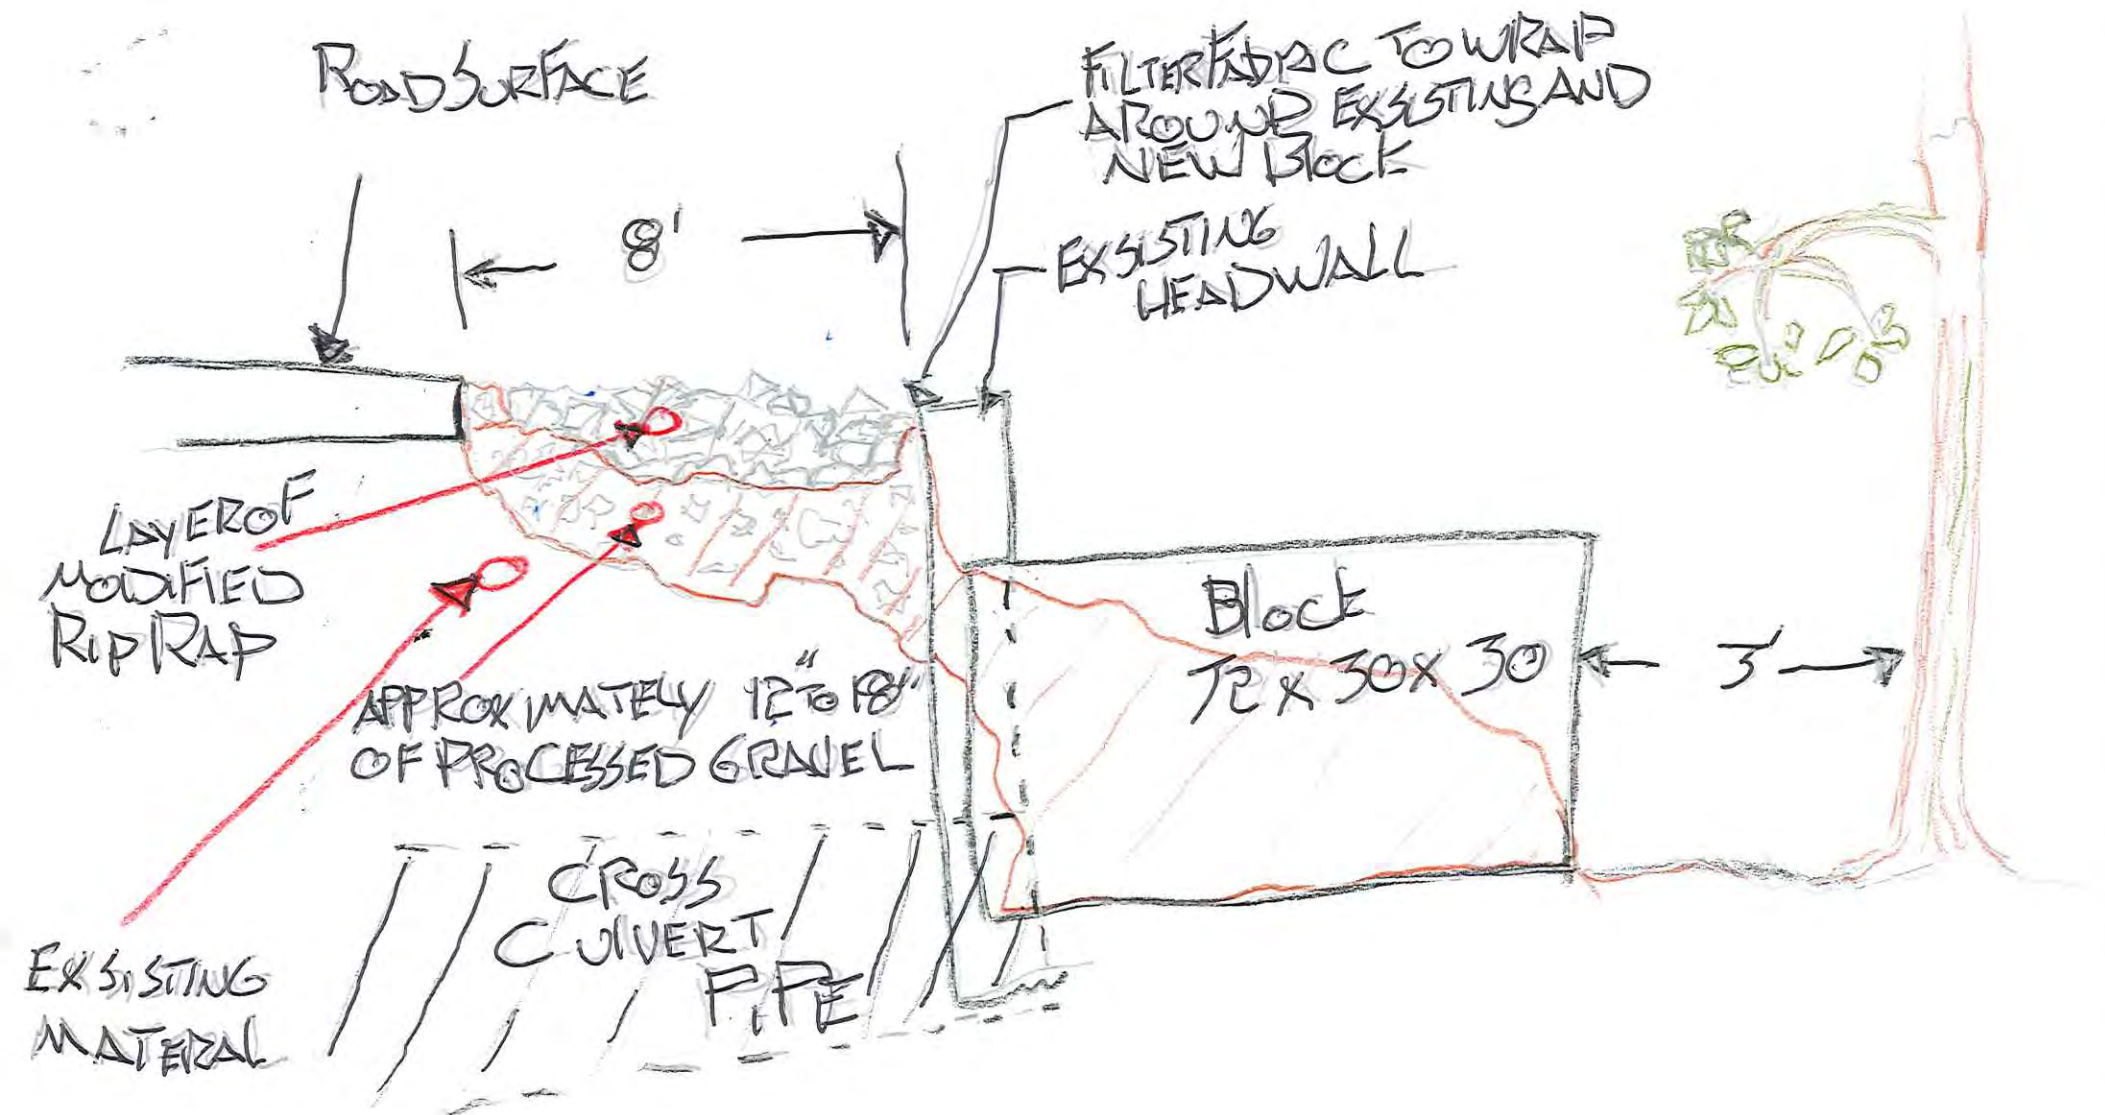 ROAD SURFACE
FILTER FABRIC TO WRAP
AROUND EXSISTING AND
NEW BLOCK
8'
EXSISTING
HEADWALL
LAYER OF
MODIFIED
RIP RAP
BLOCK
72 x 30 x 30
3'
APPROXIMATELY 12" TO 18"
OF PROCESSED GRAVEL
CROSS
CULVERT
PIPE
EXSISTING
MATERAL